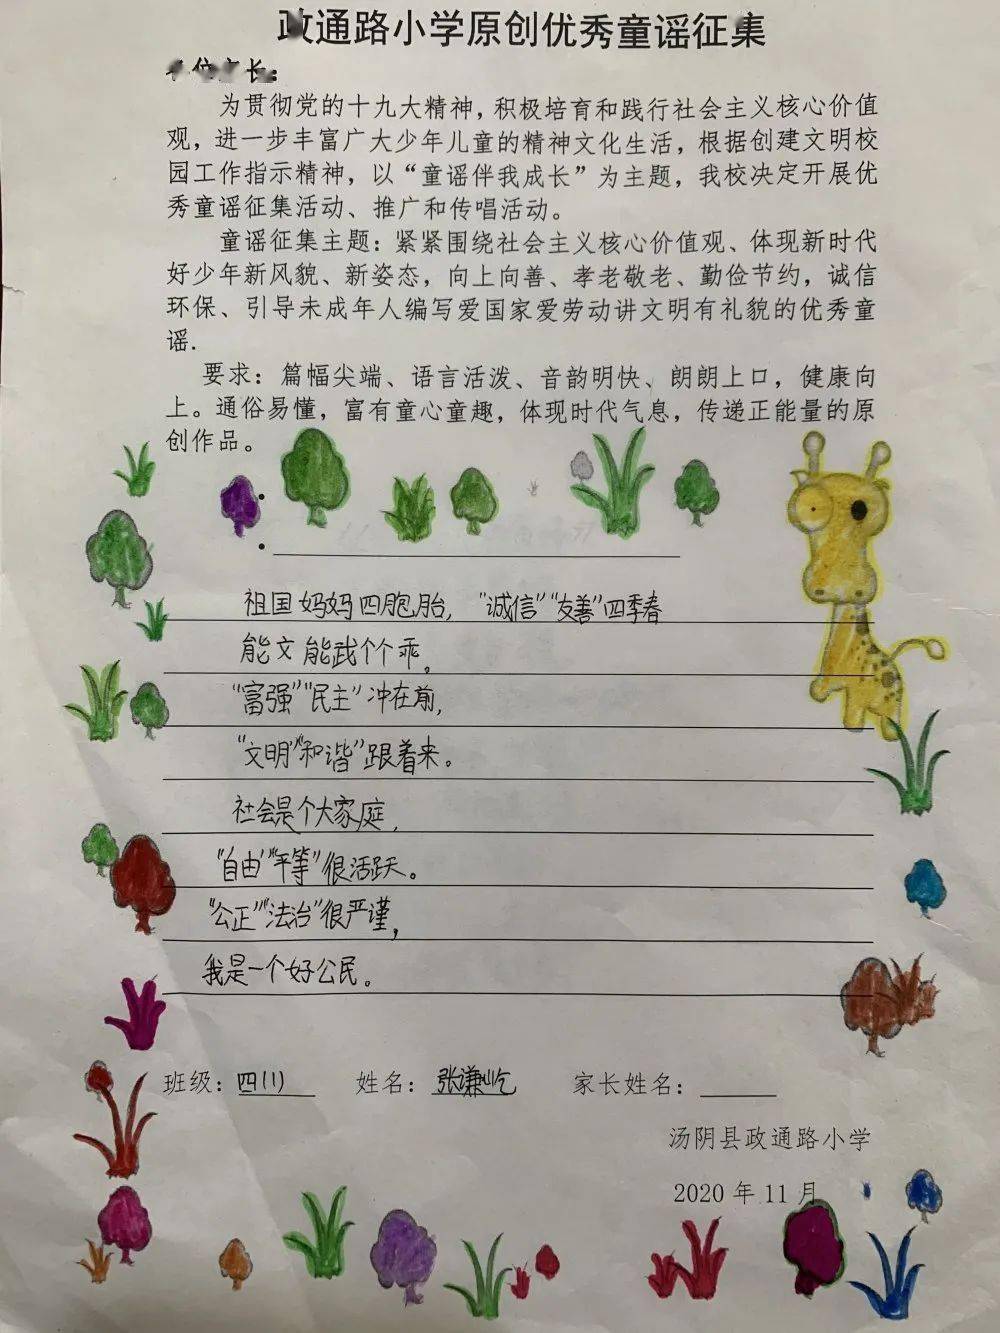 政通路小学原创优秀童谣征集
各位家长：
为贯彻党的十九大精神，积极培育和践行社会主义核心价值
观，进一步丰富广大少年儿童的精神文化生活，根据创建文明校
园工作指示精神，以“童谣伴我成长”为主题，我校决定开展优
秀童谣征集活动、推广和传唱活动。
童谣征集主题：紧紧围绕社会主义核心价值观、体现新时代
好少年新风貌、新姿态，向上向善、孝老敬老、勤俭节约，诚信
环保、引导未成年人编写爱国家爱劳动讲文明有礼貌的优秀童
谣.
要求：篇幅尖端、语言活泼、音韵明快、朗朗上口，健康向
上。通俗易懂，富有童心童趣，体现时代气息，传递正能量的原
创作品。
祖国妈妈四胞胎，“诚信”“友善”四季春
能文能武个个乖。
“富强”“民主”冲在前，
“文明”“和谐”跟着来。
社会是个大家庭，
“自由”“平等”很活跃。
“公正”“法治”很严谨，
我是一个好公民。
班级：四(1) 姓名：张谦屹 家长姓名：
汤阴县政通路小学
2020 年 11 月